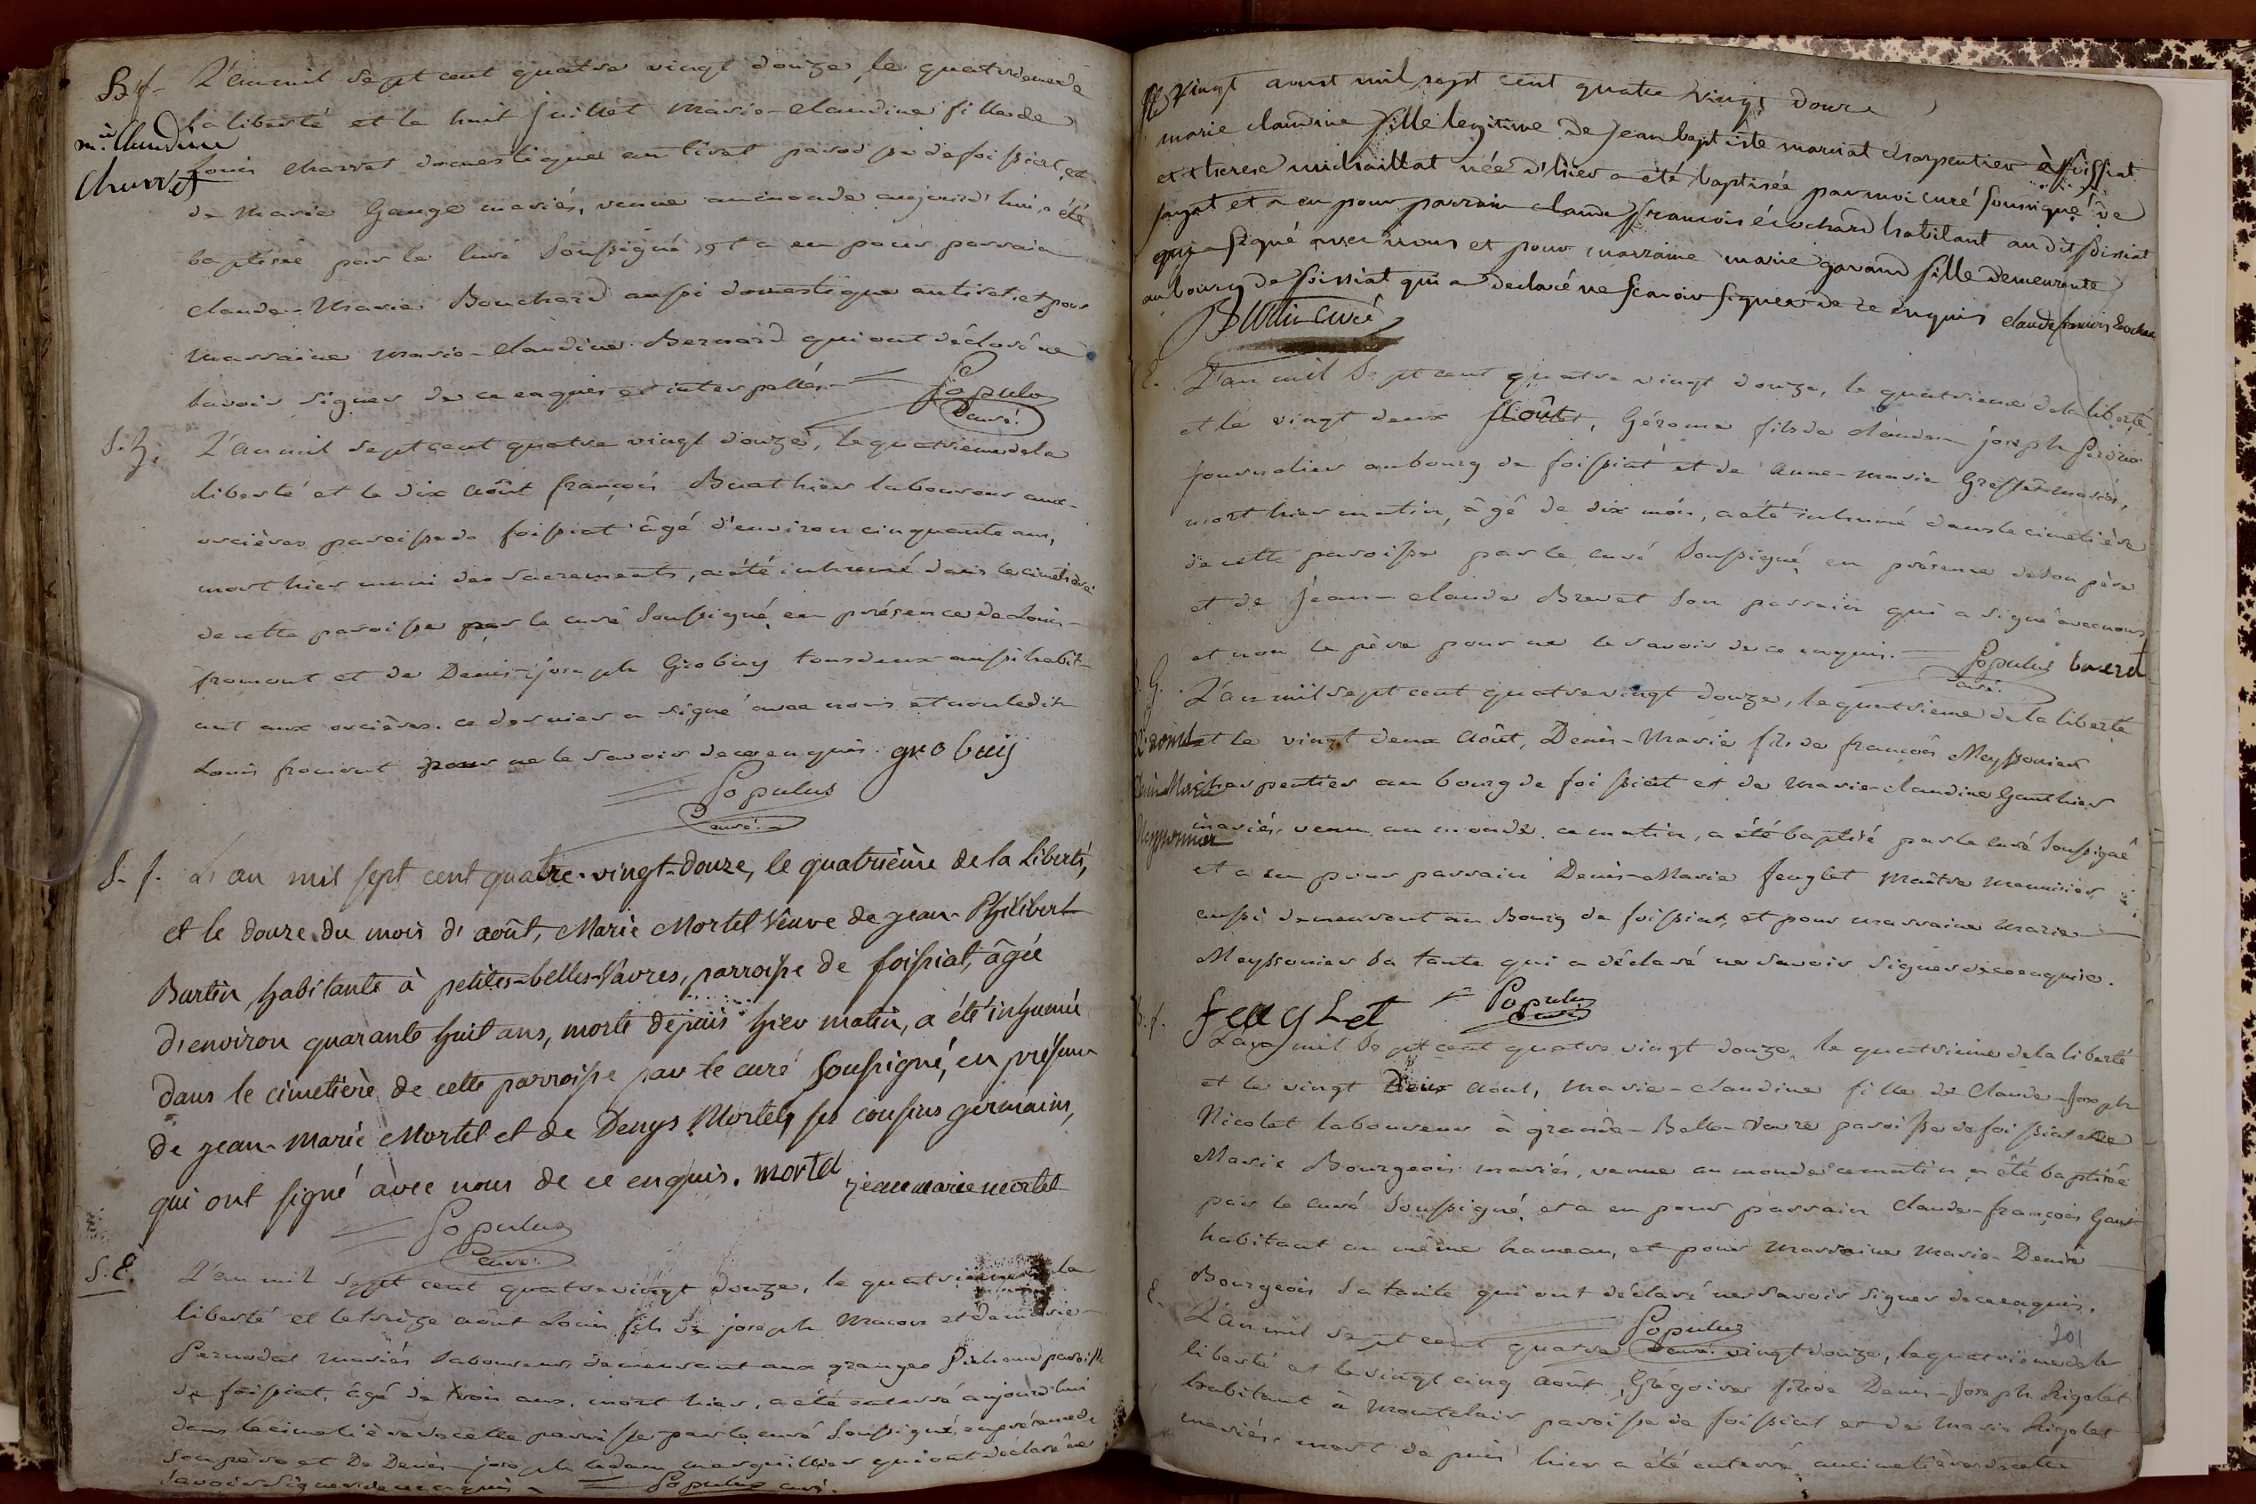 B. f. L'an mil sept cent quatre vingt douze, le quatrieme de
la liberté et le huit juillet Marie-claudine fille de
m.ie Claudine
Charvet
Louis charvet domestique au tiret paroisse de foissiat, et
de Marie Gauge mariés, venue au monde aujourd'hui a été
baptisée par le curé soussigné, et a eu pour parrain
claude-Marie Bouchard aussi domestique au tiret, et pour
marraine marie-claudine Bernard qui ont déclaré ne
savoir signer de ce enquis et interpellés.
Populus
curé.
L'an mil sept cent quatre vingt douze, le quatrieme de la
liberté et le dix août françois Buathier laboureur aux
orcières paroisse de foissiat âgé d'environ cinquante ans,
mort hier muni des sacrements, a été inhumé dans le cimetière
de cette paroisse par le curé soussigné, en présence de Louis
fromont et de Denis-joseph Grobuy tous deux aussi habit-
ant aux orcières. ce dernier a signé avec nous et non ledit
Louis fromont pour ne le savoir de ce enquis. grobuy
Populus
curé.
S. f. L'an mil sept cent quatre-vingt-douze, le quatrième de la liberté,
et le douze du mois d'août, Marie Mortel veuve de jean-Philibert
Burtin, habitante à petites-belles-Vavres, parroisse de foissiat, âgée
d'environ quarante huit ans, morte depuis hier matin, a été inhumée
dans le cimetière de cette parroisse par le curé soussigné, en présence
de jean-marie Mortel et de Denys Mortel, ses cousins germains,
qui ont signé avec nous de ce enquis. mortel jean marie mortel
Populus
curé.
S. E. L'an mil sept cent quatre vingt douze, le quatrieme de la
liberté et le treize août Louis fils de joseph Macon et de marie
Pernodat mariés laboureurs demeurant aux granges Pichaud paroisse
de foissiat, âgé de trois ans, mort hier, a été enterré aujourd'hui
dans le cimetière de cette paroisse par le curé soussigné, en présence de
son père et De Denis-joseph marguillier qui ont déclaré ne
savoir signer de ce enquis. Populus curé.
Le vingt aoust mil sept cent quatre vingt douze
marie claudine fille legitime de jean baptiste marviat charpentier à foissiat
et therese michaillat née d'hier a été baptisée par moi curé soussigné de
jayat et a eu pour parrain claude françois écochard habitant au dit foissiat
qui a signé avec nous et pour marraine marie gavand fille demeurante
au bourg de foissiat qui a declaré ne scavoir signer de ce enquis claude francois Ecochar
curé
E. L'an mil sept cent quatre vingt douze, le quatrieme de la liberté,
et le vingt deux Août, Gérome fils de claude-joseph
journalier au bourg de foissiat et de anne-marie mariés,
mort hier matin, âgé de dix mois, a été inhumé dans le cimetière
de cette paroisse par le curé soussigné en présence de son père
et de jean-claude Brevet son parrain qui a signé avec nous
et non le père pour ne le savoir de ce enquis. Populus
curé.
G. L'an mil sept cent quatre vingt douze, le quatrieme de la liberté
et le vingt deux Août, Denis-Marie fils de françois Meyssonier
charpentier au bourg de foissiat et de marie-claudine Gauthier
Denis Marie
Meyssonnier
mariés, venu au monde ce matin, a été baptisé par le curé soussigné
et a eu pour parrain Denis-Marie feuglet maître menuisier
aussi demeurant au Bourg de foissiat, et pour marraine Marie
Meyssonier sa tante qui a déclaré ne savoir signer de ce enquis.
feuglet Populus
curé
L'an mil sept cent quatre vingt douze, le quatrieme de la liberté
et le vingt Deux août, Marie-claudine fille de Claude-Joseph
Nicolet laboureur à grande-Belle-Vavre paroisse de foissiat et de
Marie Bourgeois mariés, venue au monde ce matin a été baptisée
par le curé soussigné, et a eu pour parrain claude-françois
habitant au même hameau, et pour Marraine Marie-Denise
Bourgeois sa tante qui ont déclaré ne savoir signer de ce enquis.
Populus
curé.
201
E. L'an mil sept cent quatre vingt douze, le quatrieme de la
liberté et le vingt cinq août, Grégoire fils de Denis-Joseph Rigolet
habitant à Montclair paroisse de foissiat et de Marie Rigolet
mariés, mort depuis hier a été enterré au cimetière de cette